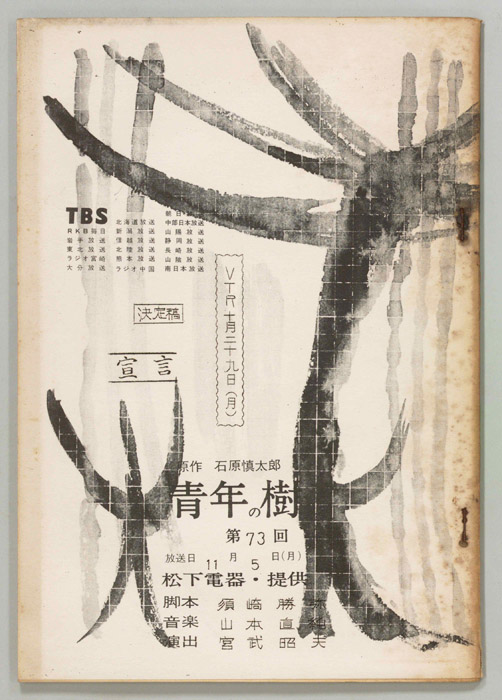 TBS
朝日放送
北海道放送 中部日本放送
RKB毎日 新潟放送 山陽放送
岩手放送 信越放送 静岡放送
東北放送 北陸放送 長崎放送
ラジオ宮崎 熊本放送 山陰放送
大分放送 ラジオ中国 南日本放送
VTR十月二十九日(月)
決定稿
宣言
原作 石原慎太郎
青年の樹
第73回
放送日 11月5日(月)
松下電器・提供
脚本 須崎勝
音楽 山本直純
演出 宮武昭夫